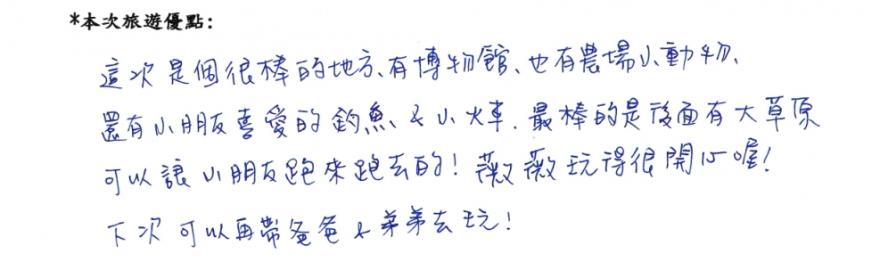 *本次旅遊優點：
這次是個很棒的地方、有博物館、也有農場小動物、
還有小朋友喜愛的釣魚、& 小火車．最棒的是後面有大草原
可以讓小朋友跑來跑去的！薇薇玩得很開心喔！
下次可以再帶爸爸 & 弟弟去玩！